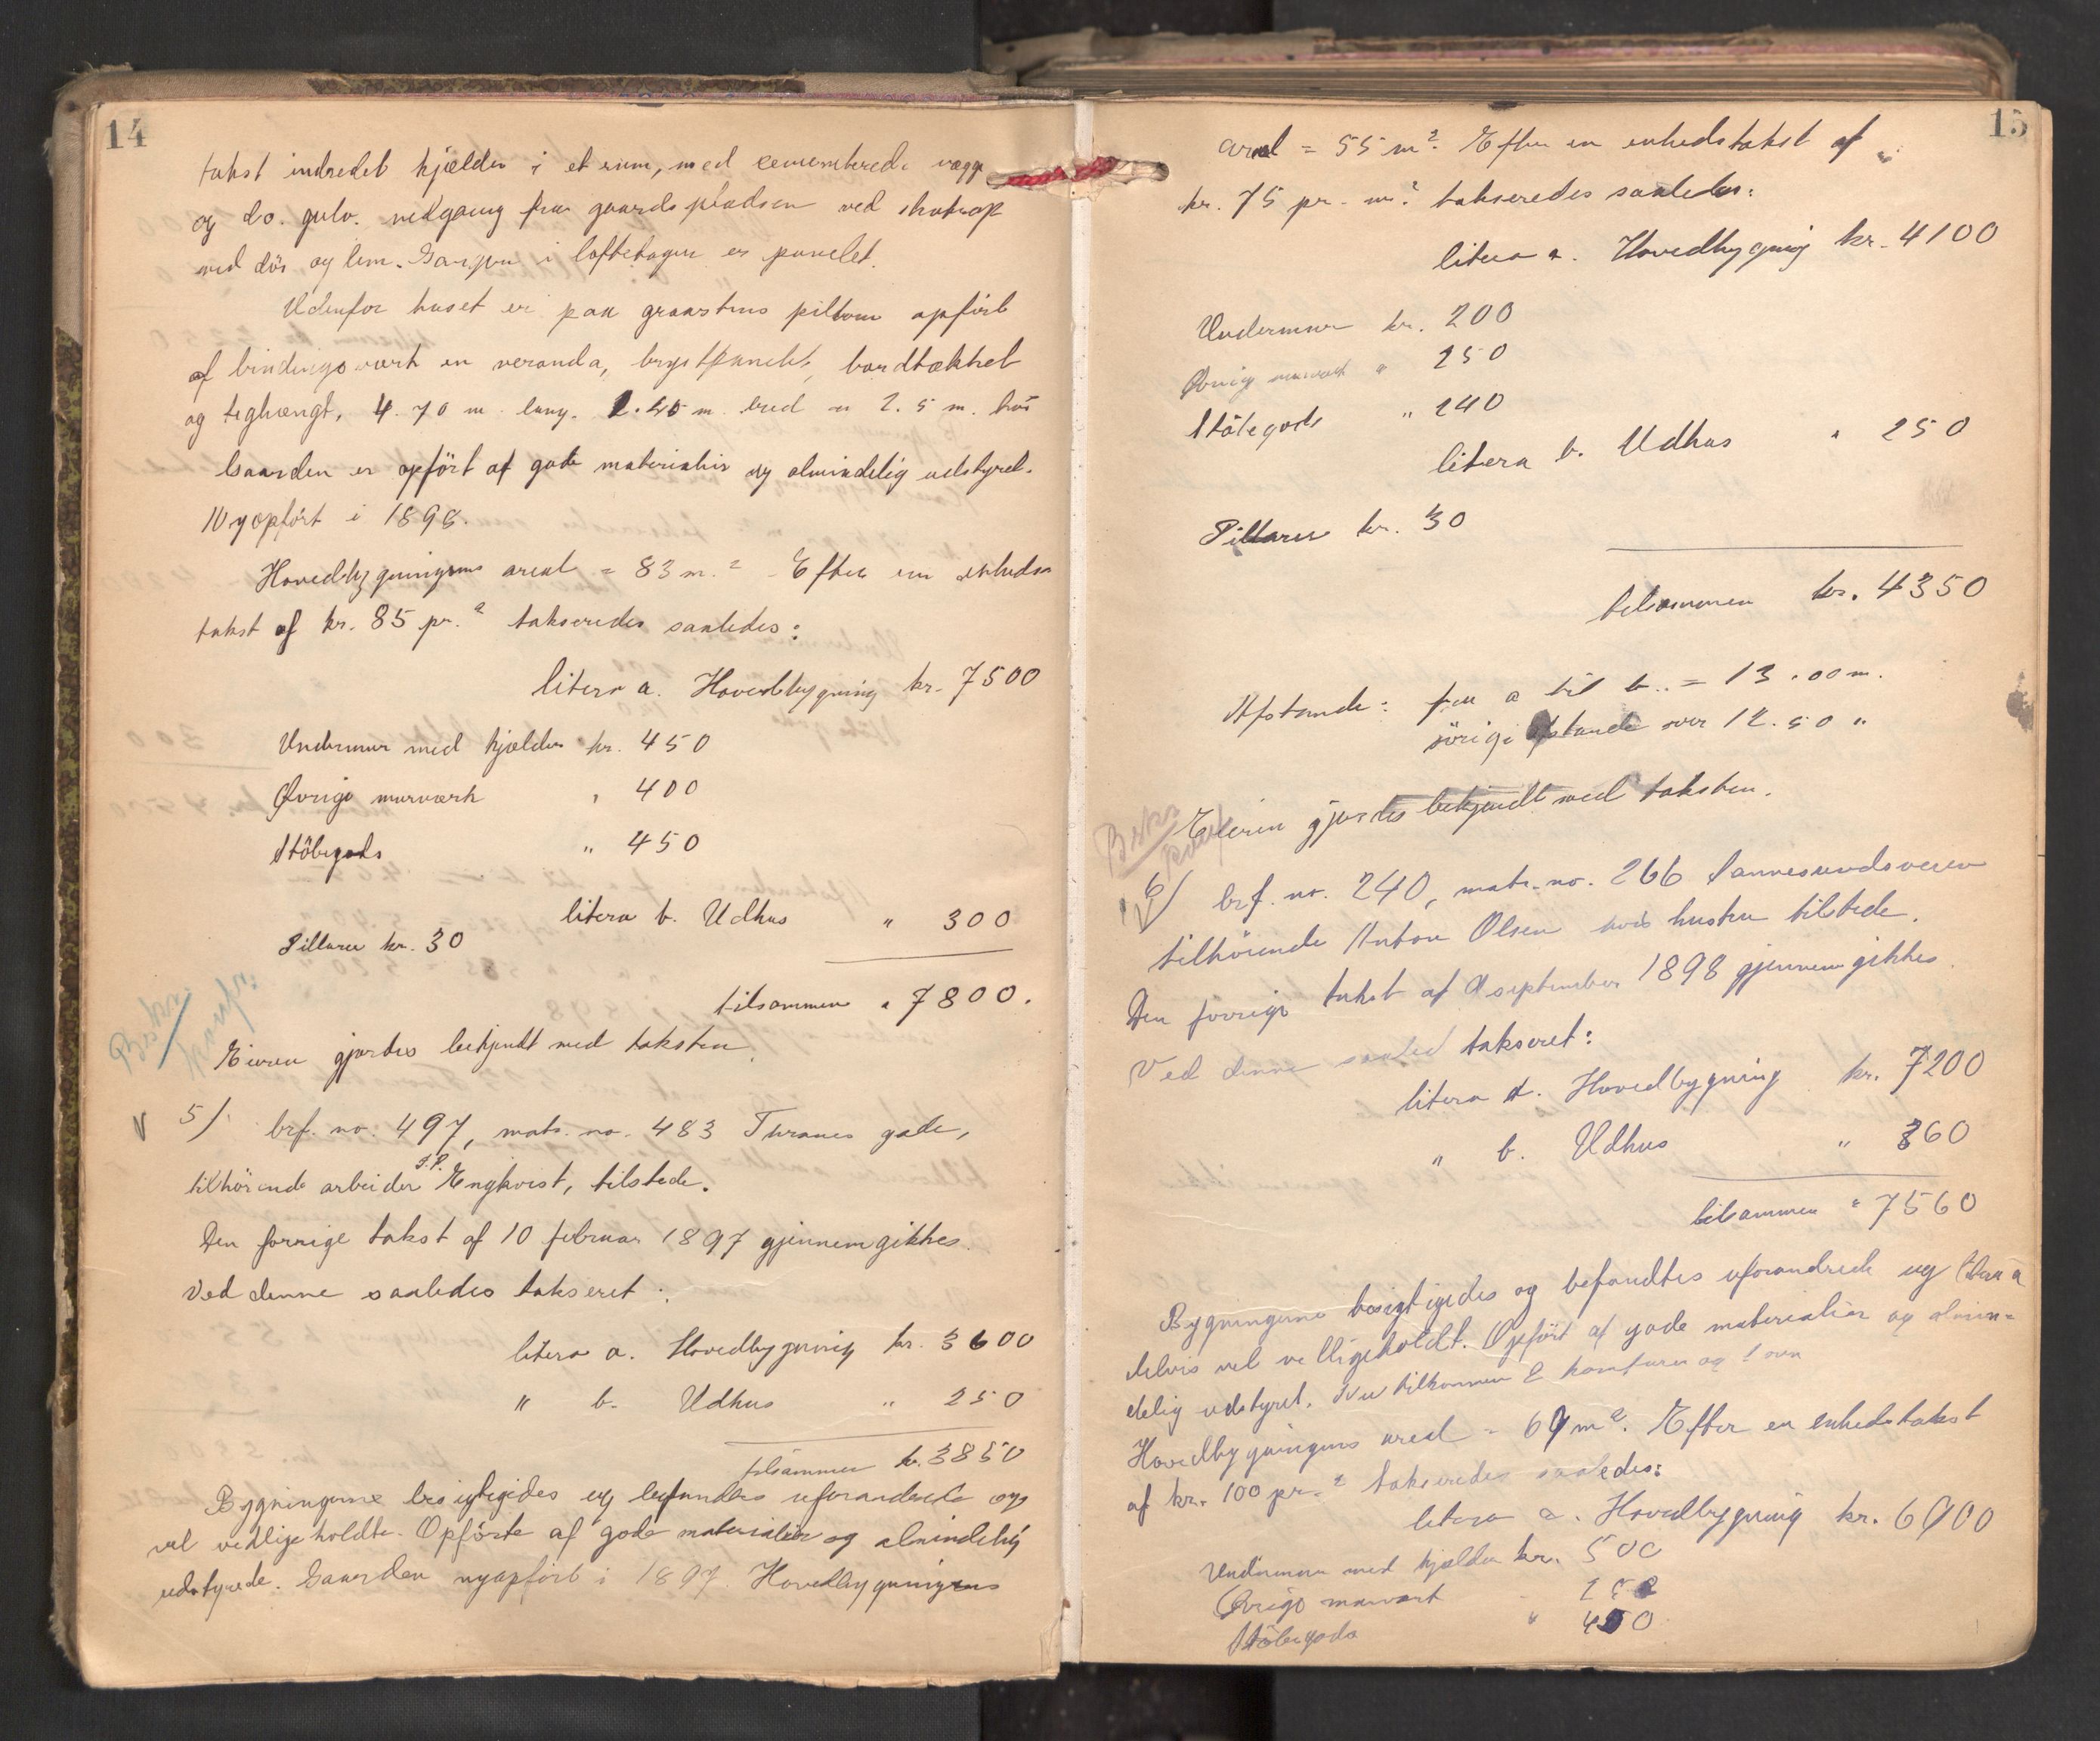 14
takst indredet kjælder i et rum, med cementerede vægge
og do. gulv. nedgang fra gaardspladsen ved
med dör og lem. Gangen i loftetagen er panelet.
Udenfor huset er paa graastens pillarer opfört
af bindingsværk en veranda, brystpanelet, bordtækket
og teghængt, 4.70 m. lang. bred og 2.5 m. höi
Gaarden er opfört af gode materialier og almindelig udstyret.
Nyopfört i 1898.
Hovedbygningens areal = 83 m.² Efter en enheds
takst af kr. 85 pr. ² takseredes saaledes:
litera a. Hovedbygning kr. 7500
Undermur med kjælder kr. 450
Övrige murværk " 400
Stöbegods " 450
litera b. Udhus " 300
Pillarer kr. 30
tilsammen " 7800.
Eieren gjordes bekjendt med taksten.
5/ brf. no. 497, matr. no. 483 Thranes gade,
tilhörende arbeider Engkvist, tilstede.
Den forrige takst af 10 februar 1897 gjennemgikkes.
Ved denne saaledes takseret:
litera a. Hovedbygning kr. 3600
" b. Udhus " 250
tilsammen kr. 3850
Bygningerne besigtigedes og befandtes uforandrede og
vel vedligeholdte. Opförte af gode materialier og almindelig
udstyrede. Gaarden nyopfört i 1897. Hovedbygningens
15
areal = 55 m². Efter en enhedstakst af
kr. 75 pr. m² takseredes saaledes:
litera a. Hovedbygning kr. 4100
Undermur kr. 200
Övrig murværk " 250
Stöbegods " 240
litera b. Udhus " 250
Pillarer kr. 30
tilsammen kr. 4350
Afstande: fra a til b. = 13.00 m.
övrige afstande over 12.50 "
Eieren gjordes bekjendt med taksten.
6/ brf. no. 240, matr. no. 266 Sannesundsveien
tilhörende Anton Olsen hvis hustru tilstede.
Den forrige takst af september 1898 gjennemgikkes.
Ved denne saaled takseret:
litera a. Hovedbygning kr. 7200
" b. Udhus " 360
tilsammen " 7560
Bygningerne besigtigedes og befandtes uforandrede og litera a
delvis vel vedligeholdt. Opfört af gode materialier og almin-
delig udstyret. Nu tilkommen 2 komfurer og 1 ovn
Hovedbygningens areal = 69 m². Efter en enhedstakst
af kr. 100 pr. ² takseredes saaledes:
litera a. Hovedbygning kr. 6900
Undermur med kjælder kr. 500
Övrige murværk
Stöbegods " 450